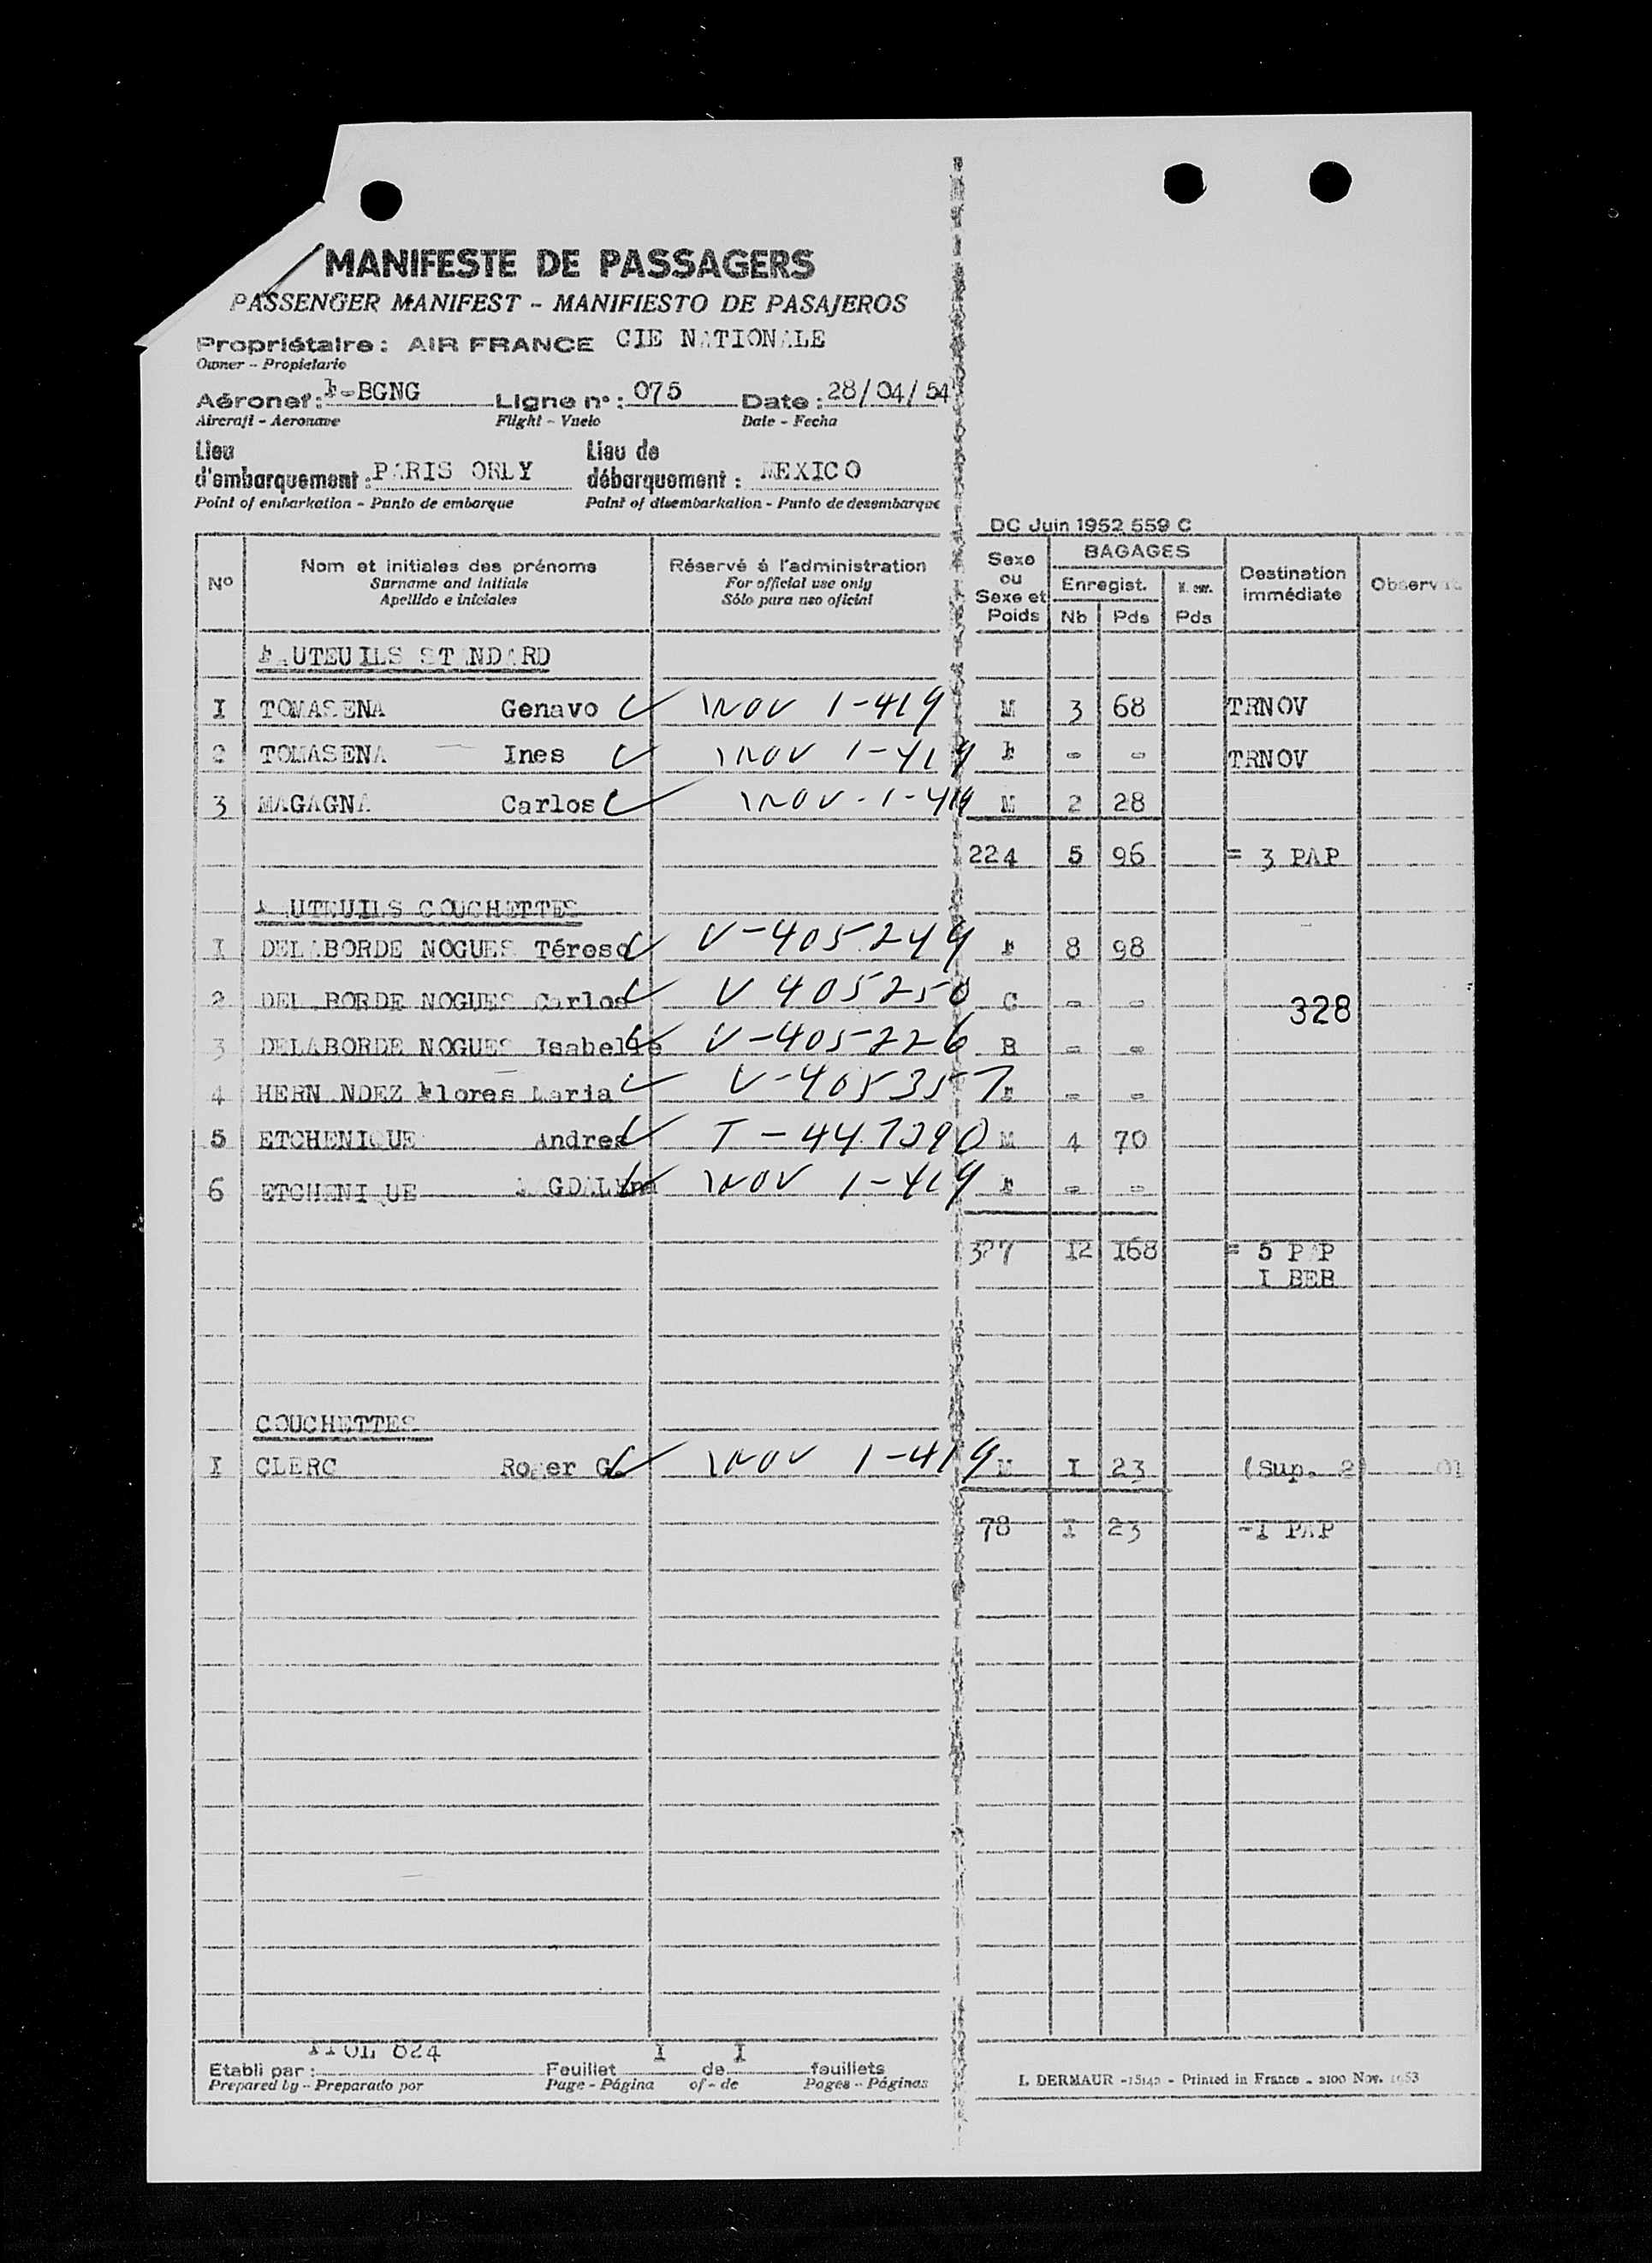 MANIFESTE DE PASSAGERS
PASSENGER MANIFEST - MANIFIESTO DE PASAJEROS
Propriétaire : AIR FRANCE CIE NATIONALE
Owner - Propietario
Aéronef : F-BGNG Ligne n° : 075 Date : 28/04/54
Aircraft - Aeronave Flight - Vuelo Date - Fecha
Lieu d'embarquement : PARIS ORLY Lieu de débarquement : MEXICO
Point of embarkation - Punto de embarque Point of disembarkation - Punto de desembarque
DC Juin 1952 559 C
N° Nom et initiales des prénoms Réservé à l'administration Sexe ou Sexe et Poids BAGAGES Destination immédiate
Surname and initials For official use only Enregist.
Apellido e iniciales Sólo para uso oficial Nb Pds Pds
FAUTEUILS STANDARD
I TOMASENA Genavo 1-419 M 3 68 TRNOV
2 TOMASENA Ines 1-419 F - - TRNOV
3 MAGAGNA Carlos 1-419 M 2 28
224 5 96 = 3 PAP
FAUTEUILS COUCHETTES
I DELABORDE NOGUES Térese V-405244 F 8 98
2 DELABORDE NOGUES Carlos V 405250 C - - 328
3 DELABORDE NOGUES Isabelle V-405226 B - -
4 HERNANDEZ Flores Maria V-405357 F - -
5 ETCHENIQUE Andres T-447390 M 4 70
6 ETCHENIQUE MAGDALena 1-419 F - -
327 12 168 = 5 PAP
I BEB
COUCHETTES
I CLERC Roger G. 1-419 M I 23 (Sup. 2
78 I 23 -I PAP
824
Etabli par : Feuillet I de I feuillets
Prepared by - Preparado por Page - Página of - de Pages - Páginas
L. DERMAUR - 15142 - Printed in France - 2100 Nov. 1953